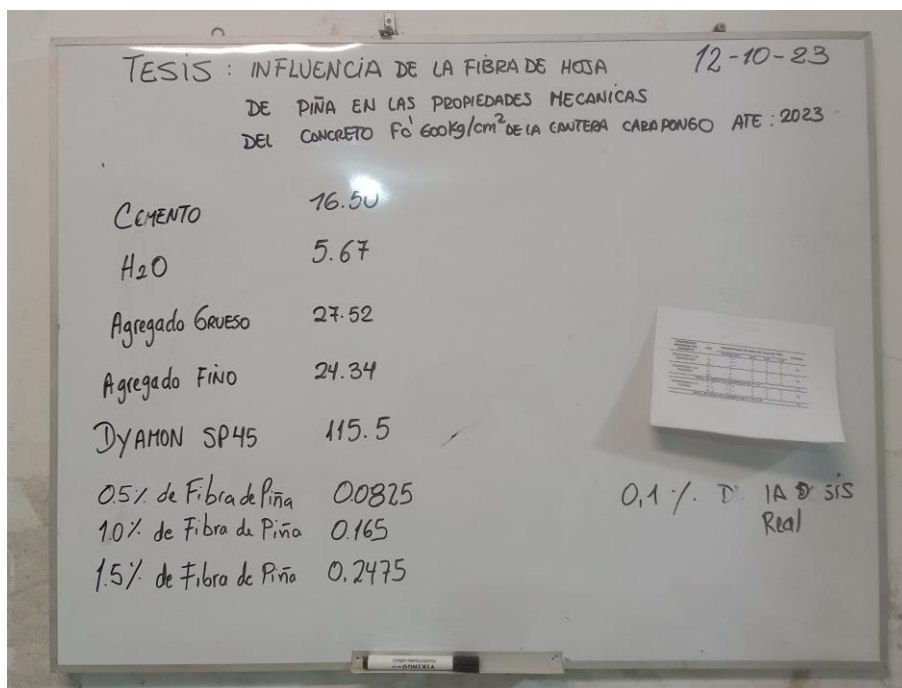 TESIS : INFLUENCIA DE LA FIBRA DE HOJA
12-10-23
DE PIÑA EN LAS PROPIEDADES MECANICAS
DEL CONCRETO Fć 600Kg/cm² DE LA CANTERA CARAPONGO ATE : 2023
CEMENTO 16.50
H2O 5.67
Agregado GRUESO 27.52
Agregado FINO 24.34
DYAMON SP45 115.5
0.5% de Fibra de Piña 0.0825
1.0% de Fibra de Piña 0.165
1.5% de Fibra de Piña 0.2475
0,1 %. D
Real